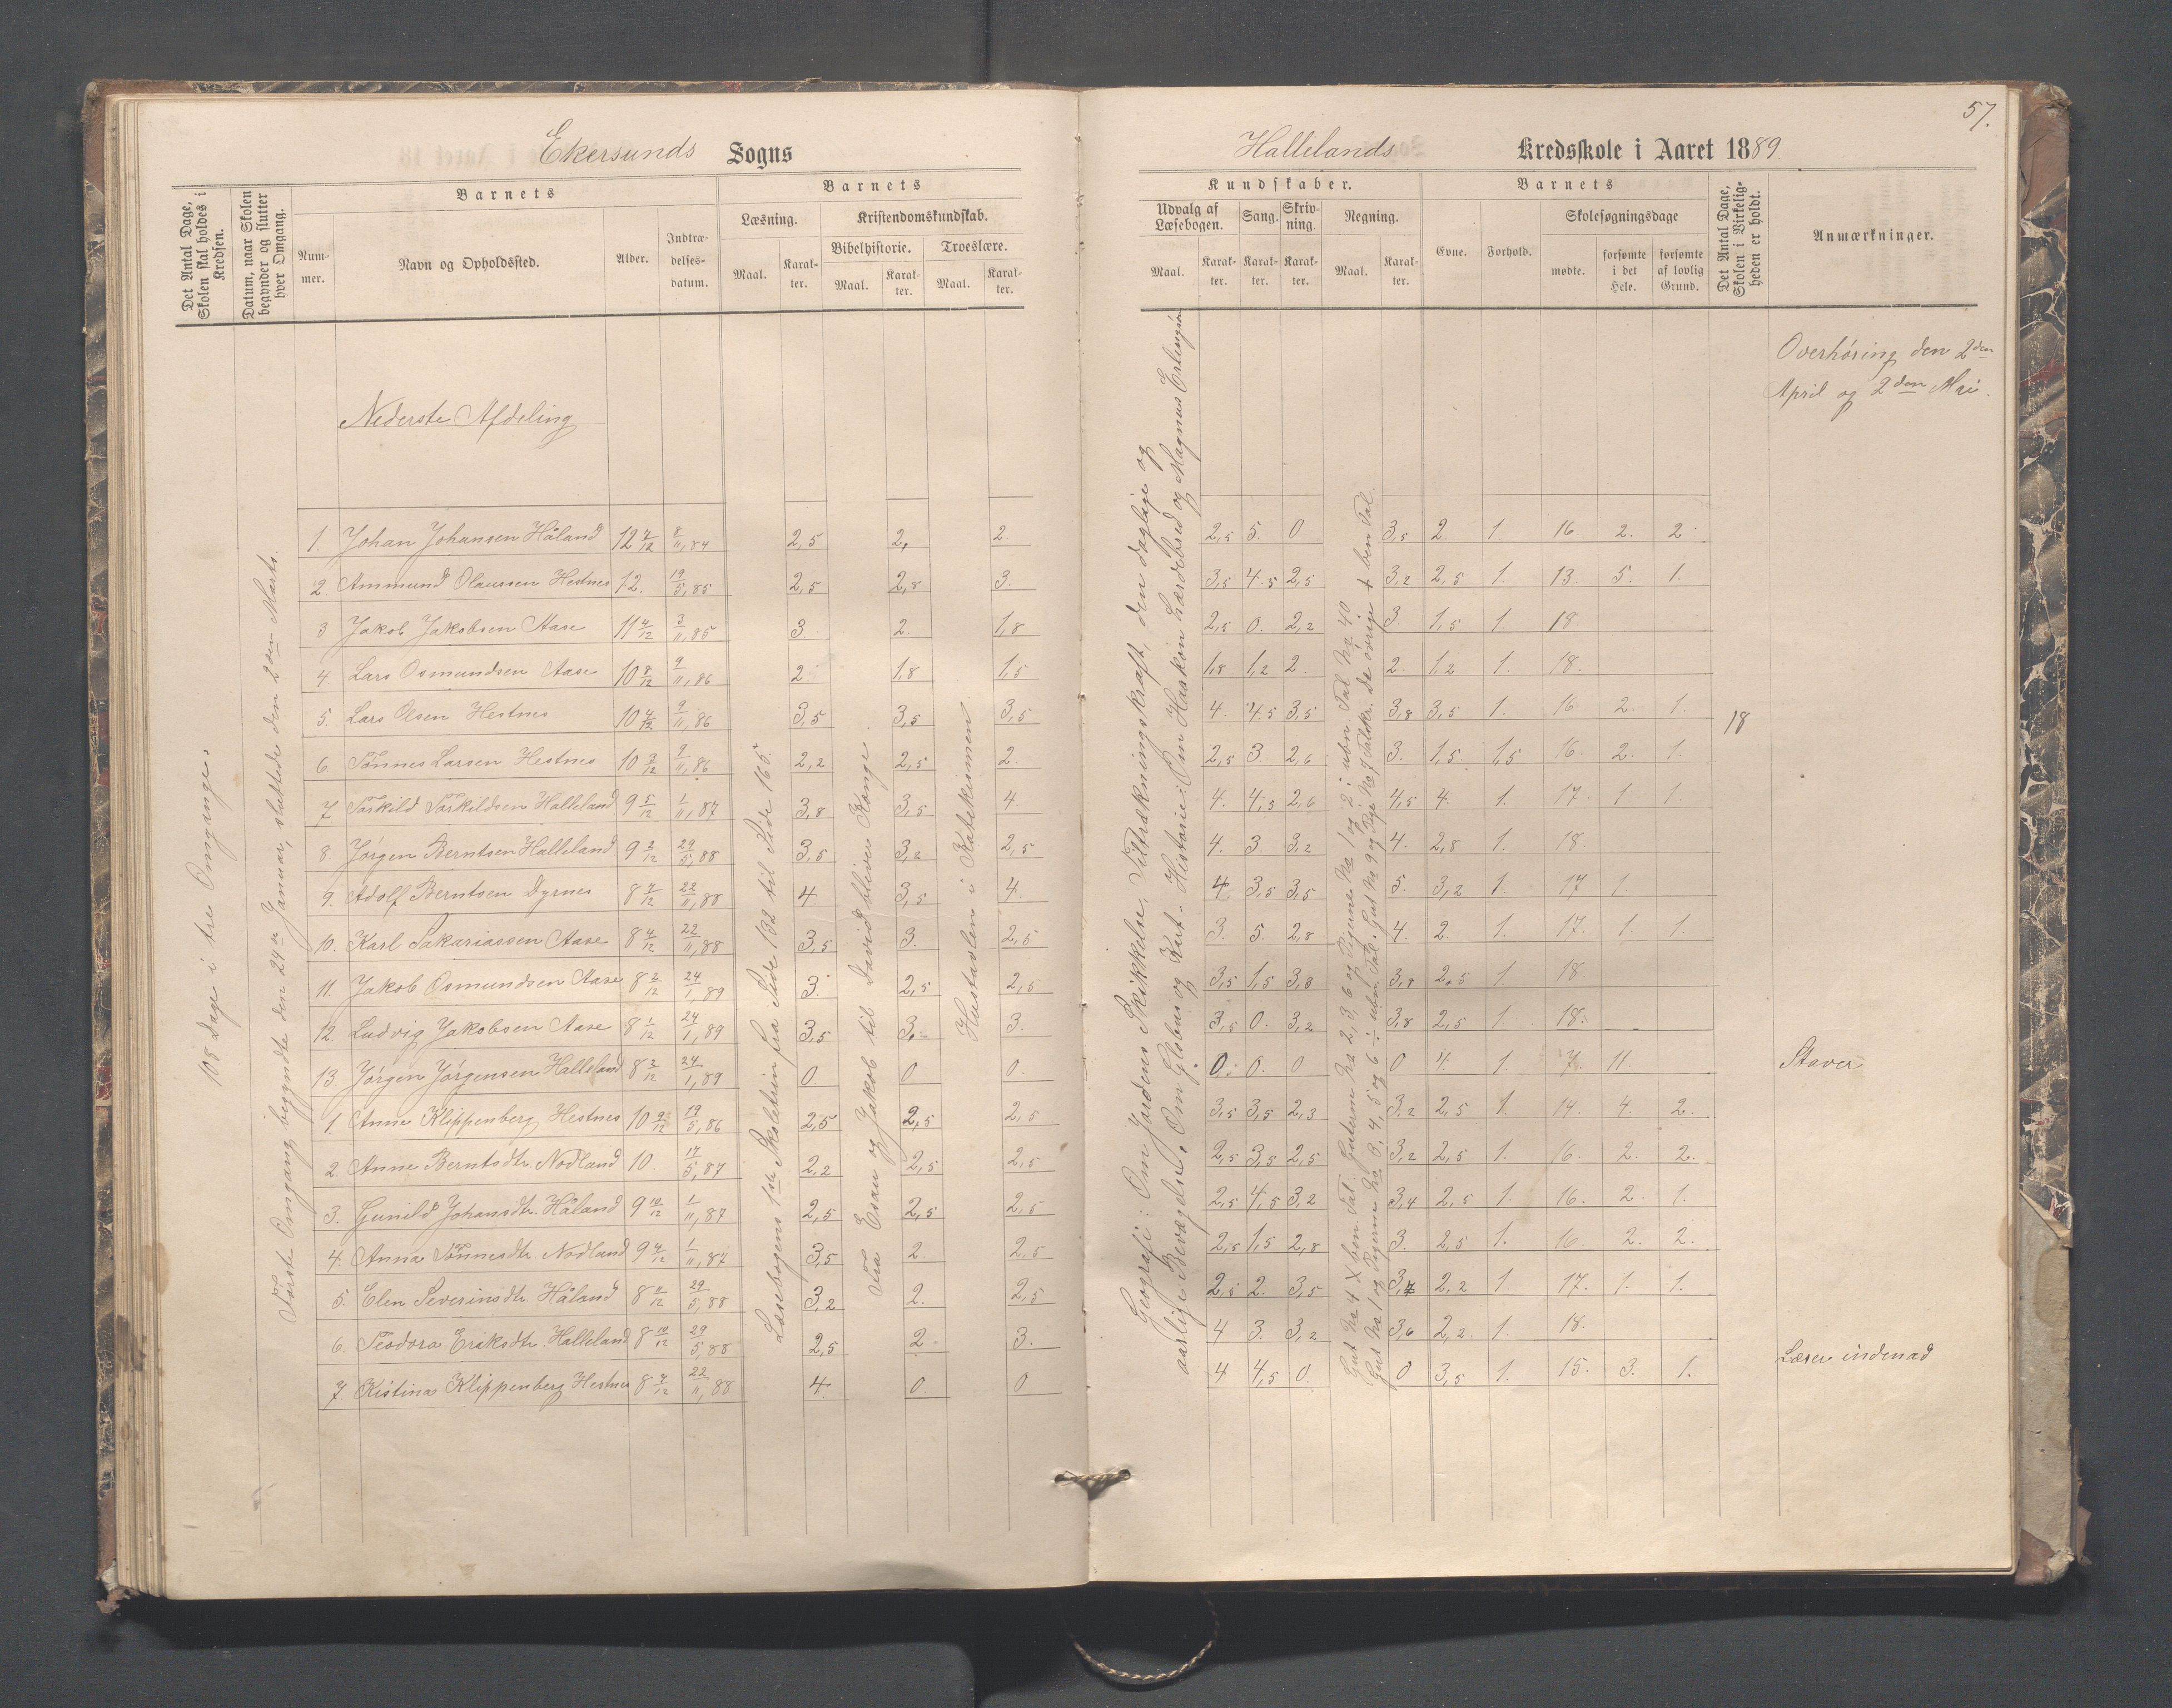 57.
Ekersunds Sogns
Hallelands Kredsskole i Aaret 1889
Det Antal Dage, Skolen skal holdes i Kredsen.
Datum, naar Skolen begynder og slutter hver Omgang.
Barnets
Nummer.
Navn og Opholdssted.
Alder.
Indtrædelsesdatum.
Barnets
Læsning.
Maal.
Karakter.
Kristendomskundskab.
Bibelhistorie.
Maal.
Karakter.
Troeslære.
Maal.
Karakter.
Kundskaber.
Udvalg af Læsebogen.
Maal.
Karakter.
Sang.
Karakter.
Skrivning.
Karakter.
Regning.
Maal.
Karakter.
Barnets
Evne.
Forhold.
Skolesøgningsdage
mødte.
forsømte i det Hele.
forsømte af lovlig Grund.
Det Antal Dage, Skolen i Virkeligheden er holdt.
Anmærkninger.
108 Dage i tre Omgange.
Første Omgang begyndte den 24de Januar, sluttede den 2den Marts
Nederste Afdeling
Læsebogens 1ste Skoletrin fra Side 132 til Side 165.
Fra Esau og Jakob til David bliver Konge.
Hustavlen i Katekismen
Geografi: Om Jordens Skikkelse, Tiltrækningskraft, den daglige og
aarlige Bevægelse. Om Globus og Kart. Historie: Om Haakon Herdebred og Magnus Erlingsøn
Overhøring den 2den
April og 2den Mai.
1. Johan Johansen Håland 12 7/12 8/11,84 2,5 2, 2. 2,5 5. 0 3,5 2. 1. 16 2. 2
2. Ammund Olaussen Hestnes 12. 19/5,85 2,5 2,8 3. 3,5 4.5 2,5 3,2 2,5 1. 13. 5. 1.
3 Jakob Jakobsen Aase 11 4/12 3/11,85 3. 2. 1,8 2,5 0. 2,2 3. 1,5 1. 18.
4. Lars Osmundsen Aase 10 8/12 9/11,86 2 1,8 1,5 1,8 1,2 2. 2. 1,2 1. 18.
5. Lars Olsen Hestnes 10 4/12 9/11,86 3,5 3,5 3,5 4. 4.5 3,5 3,8 3,5 1. 16. 2. 1. 18
6. Tønnes Larsen Hestnes 10 3/12 9/11,86 2,2 2,5 2. 2,5 3. 2,6 3. 1,5. 1,5 16. 2. 1.
7. Torkild Torkildsen Halleland 9 5/12 1/11,87 3,8 3,5 4. 4. 4,5 2,6 4,5 4. 1. 17. 1 1.
8. Jørgen Berntsen Halleland 9 2/12 29/5,88 3,5 3,2 2,5 4. 3. 3,2 4. 2,8 1. 18.
9. Adolf Berntsen Dyrnes 8 7/12 22/11,88 4 3,5 4. 4. 3,5 3,5 5. 3,2 1. 17 1.
10. Karl Sakariassen Aase 8 4/12 22/11,88 3,5 3. 2,5 3. 5. 2,8 4. 2. 1. 17. 1. 1.
11. Jakob Osmundsen Aase 8 2/12 24/1,89 3. 2,5 2,5 3,5 1,5 3,8 3,8 2,5 1. 18.
12. Ludvig Jakobsen Aase 8 1/12 24/1,89 3,5 3. 3. 3,5 0. 3,2 3,8 2,5 1 18.
13 Jørgen Jørgensen Halleland 8 2/12 24/1,89 0. 0 0. 0. 0. 0 0 4. 1. 7. 11. Staver
1. Anne Klippenberg Hestnes 10 9/12 19/5,86 2,5 2,5 2,5 3,5 3,5 2,3 3,2 2,5 1. 14. 4. 2.
2. Anne Berntsdtr. Nodland 10. 17/5,87 2,2 2,5 2,5 2,5 3,5 2,5 3,2 2,5 1. 16. 2. 2.
3. Gunild Johansdtr. Håland 9 10/12 1/11,87 2,5 2,5 2,5 2,5 4,5 3,2 3,4 2,5 1. 16. 2. 1.
4. Anna Tønnesdtr. Nodland 9 4/12 1/11,87 3,5 2. 2,5 2,5 1,5 2,8 3. 2,5 1. 16. 2. 2.
5. Elen Severinsdtr. Håland 8 11/12 29/5,88 3,2 2. 2,5 2,5 2. 3,5 2,2 1. 17. 1. 1.
6. Teodora Eriksdtr. Halleland 8 10/12 29/5,88 2,5 2 3. 4 3. 3,2 3,6 2,2. 1. 18.
7. Kistina Klippenberg Hestnes 8 7/12 22/11,88 4. 0. 0 4 4,5 0. 0 3,5 1. 15. 3. 1. Læser indenad